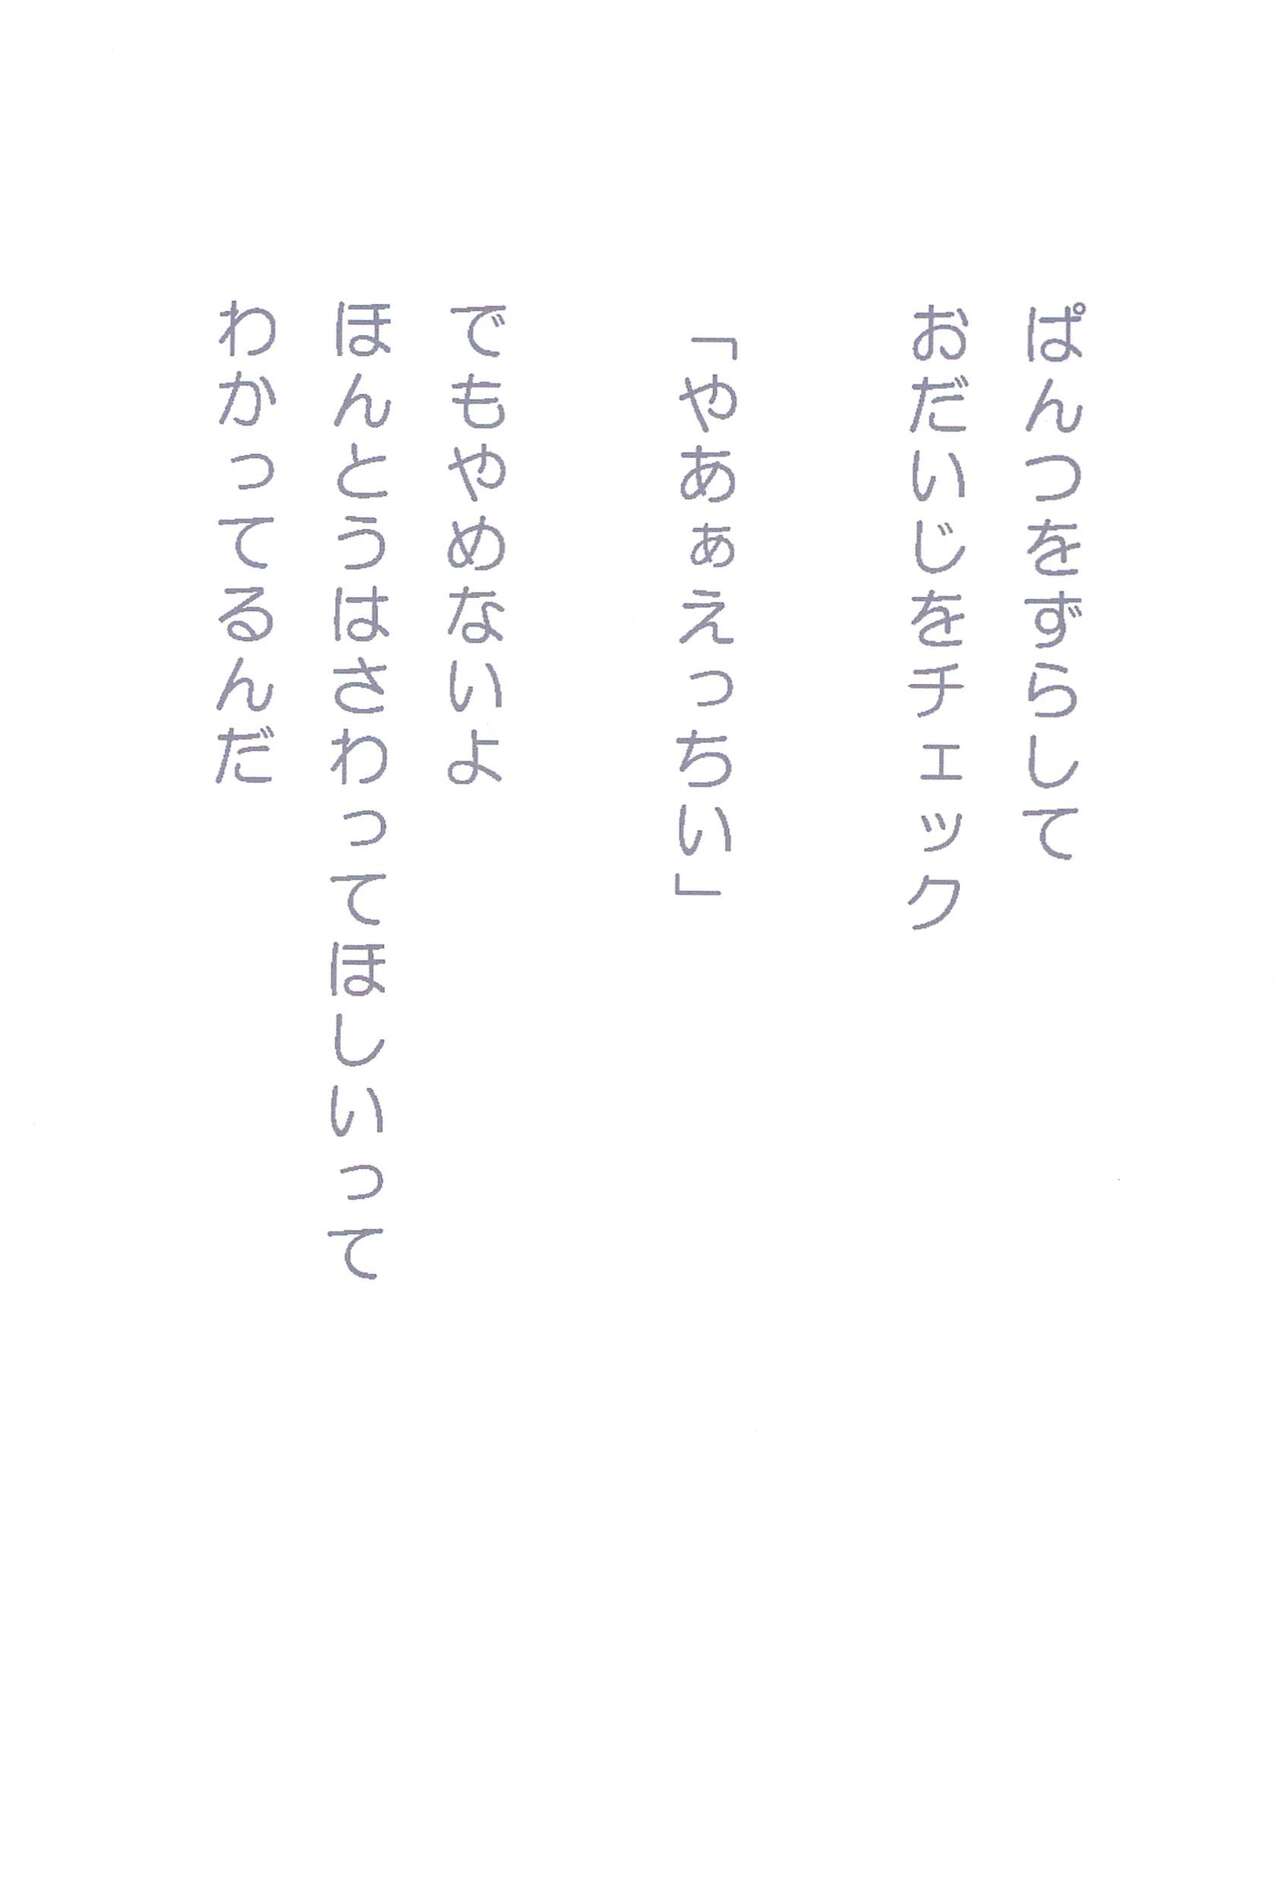 ぱんつをずらして
おだいじをチェック
「やあぁえっちい」
でもやめないよ
ほんとうはさわってほしいって
わかってるんだ